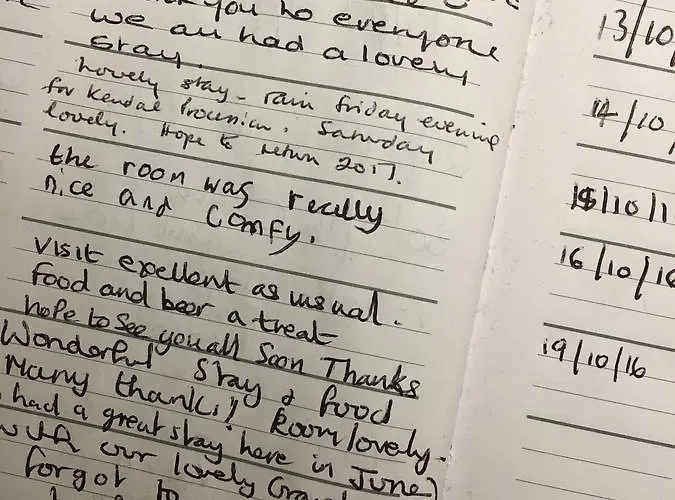 you to everyone
we all had a lovely
stay.
Lovely stay - rain friday evening
for Kendal Procession. Saturday
lovely. Hope to return 2017.
the room was really
nice and comfy.
Visit exellent as usual.
food and beer a treat
hope to see you all Soon Thanks
Wonderful stay & food
Many thanks! Room lovely.
had a great stay here in June)
with our lovely
forgot to
13/10
14/10
15/10/1
16/10/16
19/10/16